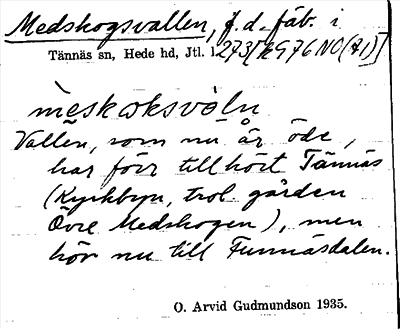 Medskogsvallen, f. d. fäb. i
Tännäs sn, Hede hd, Jtl. 1.273[k976NO(71)]
mèskɷksváln
Vallen, som nu är öde,
har förr tillhört Tännäs
(Kyrkbyn, trol. gården
Övre Medskogen), men
hör nu till Funnäsdalen.
O. Arvid Gudmundson 1935.